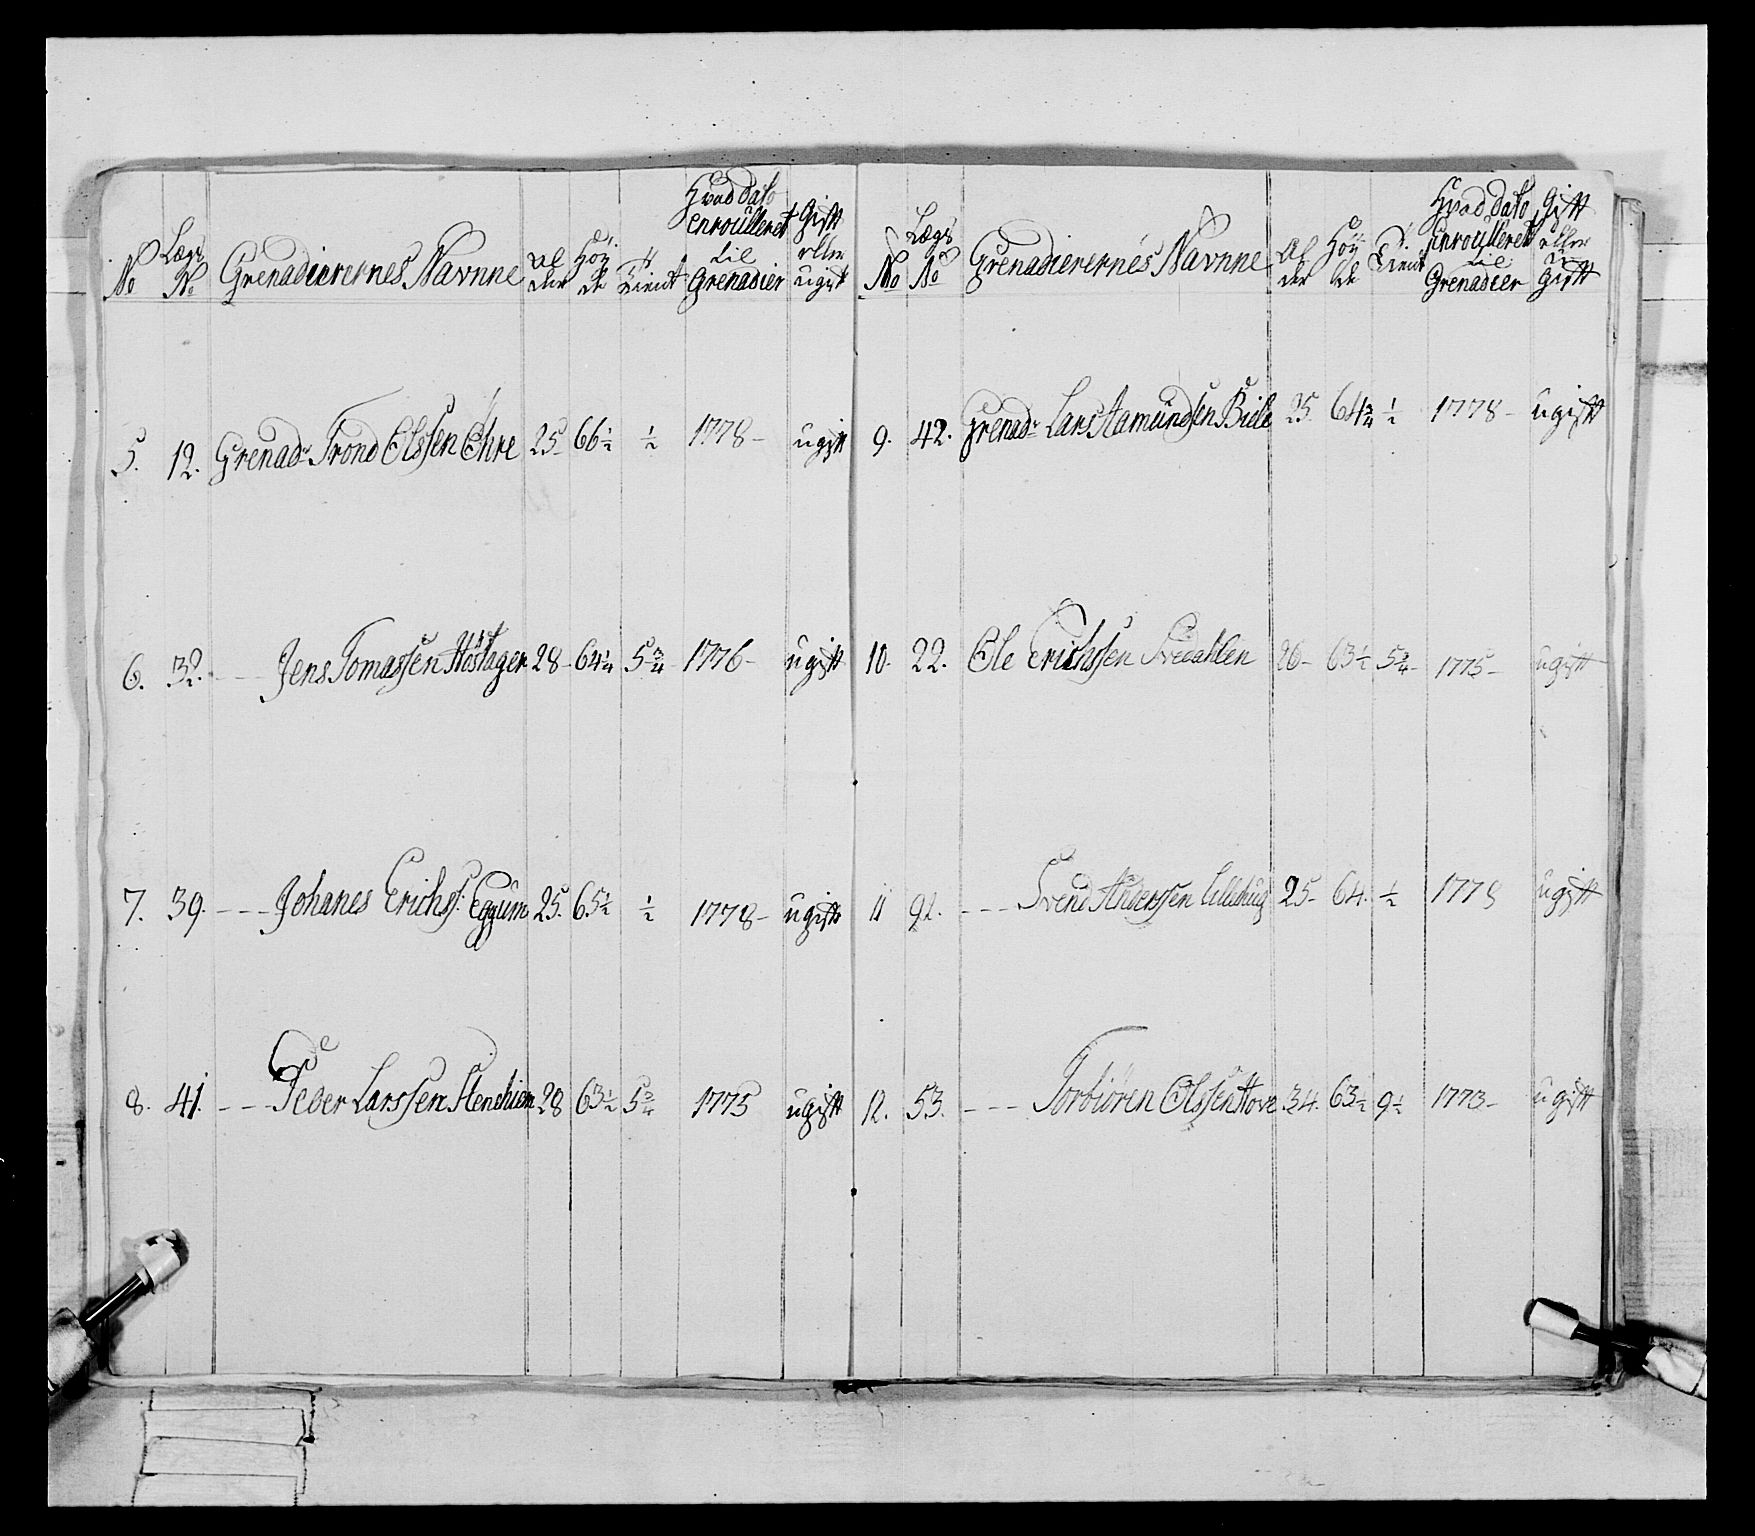 No Lægs No Grenadierernes Navnne Alder Höyde Tient Hvad Dato enroulleret til Grenadier Gift eller ugift
5. 12. Grenadr Trond Olssen Ehre 25 66½ ½ 1778 - ugift
6. 32. - - Jens Tomassen Höstager 28 - 64¼ 5¾ 1776 - ugift
7. 39. - - - Johanes Erichs: Eggum 25. 65½ ½ 1778 - ugift
8. 41. - - - Peder Larssen Stenshiem 28 63½ 5¾ 1775 ugift
No Lægs No Grenadierernes Navnne Alder Höyde Tient Hvad Dato Enroulleret til Grenadier Gift eller Ugift
9. 42. Grenadr Lars Aamundsen 25 64¾ ½ 1778 - ugift
10. 22. Ole Erichssen 26 - 63½ 5¾ - 1775 - ugift
11 91. - - - Svend Anderssen Lillehug 25 - 64. ½ 1778 ugift
12. 53. - - - Torbiören Olssen Hove 34. 63½ 9½ 1773 - ugift